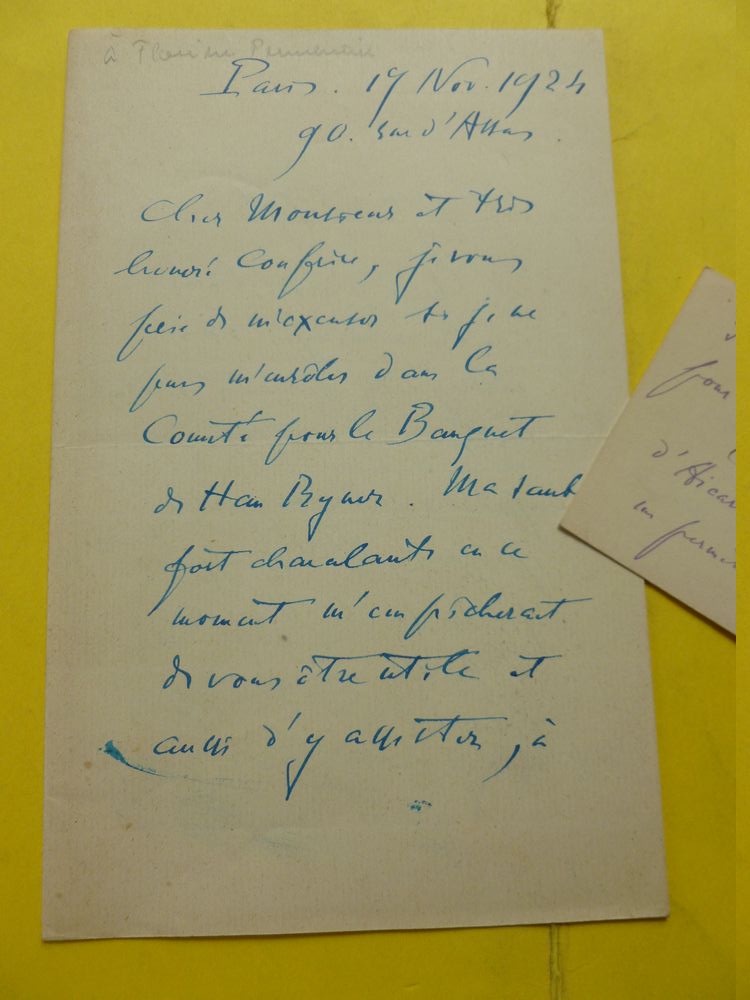 à Florian Parmentier
Paris. 19 Nov. 1924
90. rue d'Assas.
Cher Monsieur et très
honoré Confrère, je vous
prie de m'excuser si je ne
puis m'enrôler dans le
Comité pour le Banquet
de Han Ryner. Ma santé
fort chancelante en ce
moment m'empêcherait
de vous être utile et
aussi d'y assister, à
pour
un